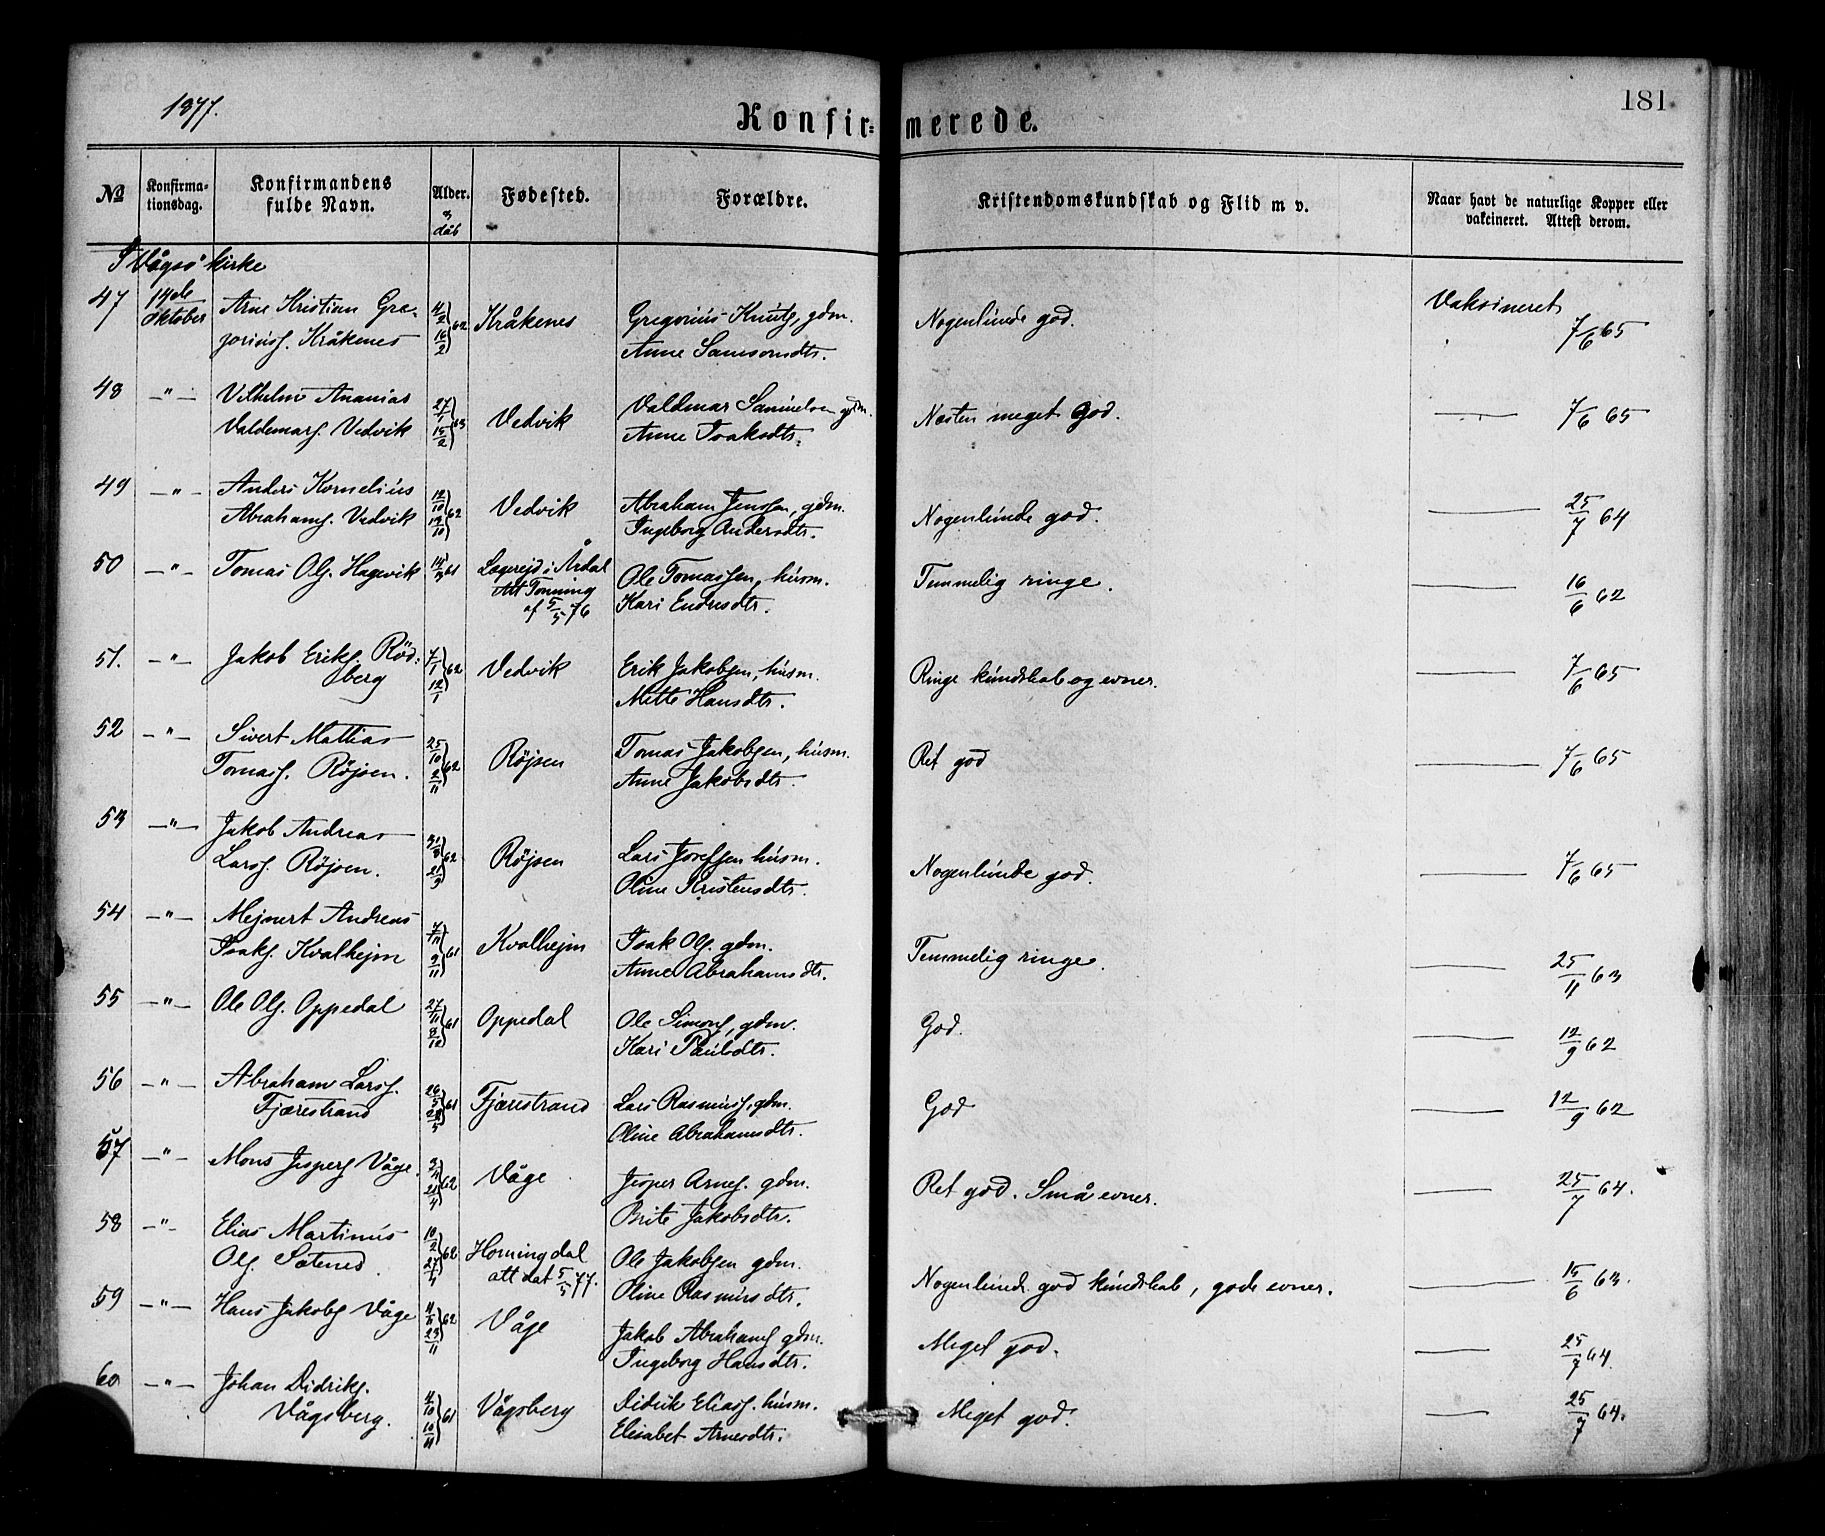 1877.
181
Konfir=merede.
No
Konfirma-
tionsdag.
Konfirmandens
fulde Navn.
Alder.
& dåb
Fødested.
Forældre.
Kristendomskundskab og Flid m v.
Naar havt de naturlige Kopper eller
vakcineret. Attest derom.
I Vågsø kirke
47 14de Oktober Arne Kristian Gre- 4/2 62 Kråkenes Gregorius Knuts, gdm. Nogenlunde god. Vaksineret 7/6 65
goriuss. Kråkenes 16/2 Anne Samsonsdtr.
48 —"— Vilhelm Ananias 27/1 63 Vedvik Valdemar Samuelsen gdm. Næsten meget god. — 7/6 65
Valdemars. Vedvik 15/2 Anne Isaksdtr.
49 —"— Anders Kornelius 12/10 62 Vedvik Abraham Jenssen, gdm. Nogenlunde god. — 25/7 64
Abrahams. Vedvik 19/10 Ingeborg Andersdtr.
50 —"— Tomas Ols. Hagevik 61 i Årdal Ole Tomassen, husm. Temmelig ringe. — 16/6 62
Att Tonning Kari Endresdtr.
af 5/5 76
51. —"— Jakob Eriks. Rød- 7/1 62 Vedvik Erik Jakobsen, husm. Ringe kundskab og evner. — 7/6 65
berg 12/1 Mette Hansdtr.
52 —"— Sivert Mattias 25/10 62 Røjsen Tomas Jakobsen, husm. Ret god — 7/6 65
Tomass. Røjsen. 2/11 Anne Jakobsdtr.
53 —"— Jakob Andreas 31/8 62 Røjsen Lars Josefsen husm. Nogenlunde god. — 7/6 65
Larss. Røjsen. 21/9 Oline Kristensdtr.
54 —"— Mejnert Andreas 7/11 61 Kvalhejm Isak Ols. gdm. Temmelig ringe. — 25/4 63
Isaks. Kvalhejm 9/11 Anne Abrahamsdtr.
55 —"— Ole Ols. Oppedal 27/11 61 Oppedal Ole Simons, gdm. God. — 12/9 62
8/12 Kari Paulsdtr.
56 —"— Abraham Larss. 26/5 61 Fjærestrand Lars Rasmuss, gdm. God — 12/9 62
Fjærestrand 28/5 Oline Abrahamsdtr.
57 —"— Mons Jespers Våge. 3/4 62 Våge Jesper Arnes. gdm. Ret god. Små evner. — 25/7 64.
21/4 Brite Jakobsdtr.
58 —"— Elias Martinus 10/2 62 Horningdal Ole Jakobsen gdm. Nogenlunde god kundskab, gode evner. — 15/6 63.
Ols. Sætened. att dat 5/5 77. Oline Rasmusdtr.
59 —"— Hans Jakobs Våge 62 Våge Jakob Abrahams gdm. Meget god. — 25/7 64.
23/11 Ingeborg Hansdtr.
60 —"— Johan Didriks. 4/10 61 Vågsberg Didrik Eliass. husm. Meget god. — 25/7 64.
Vågsberg. 10/11 Elisabet Arnesdtr.